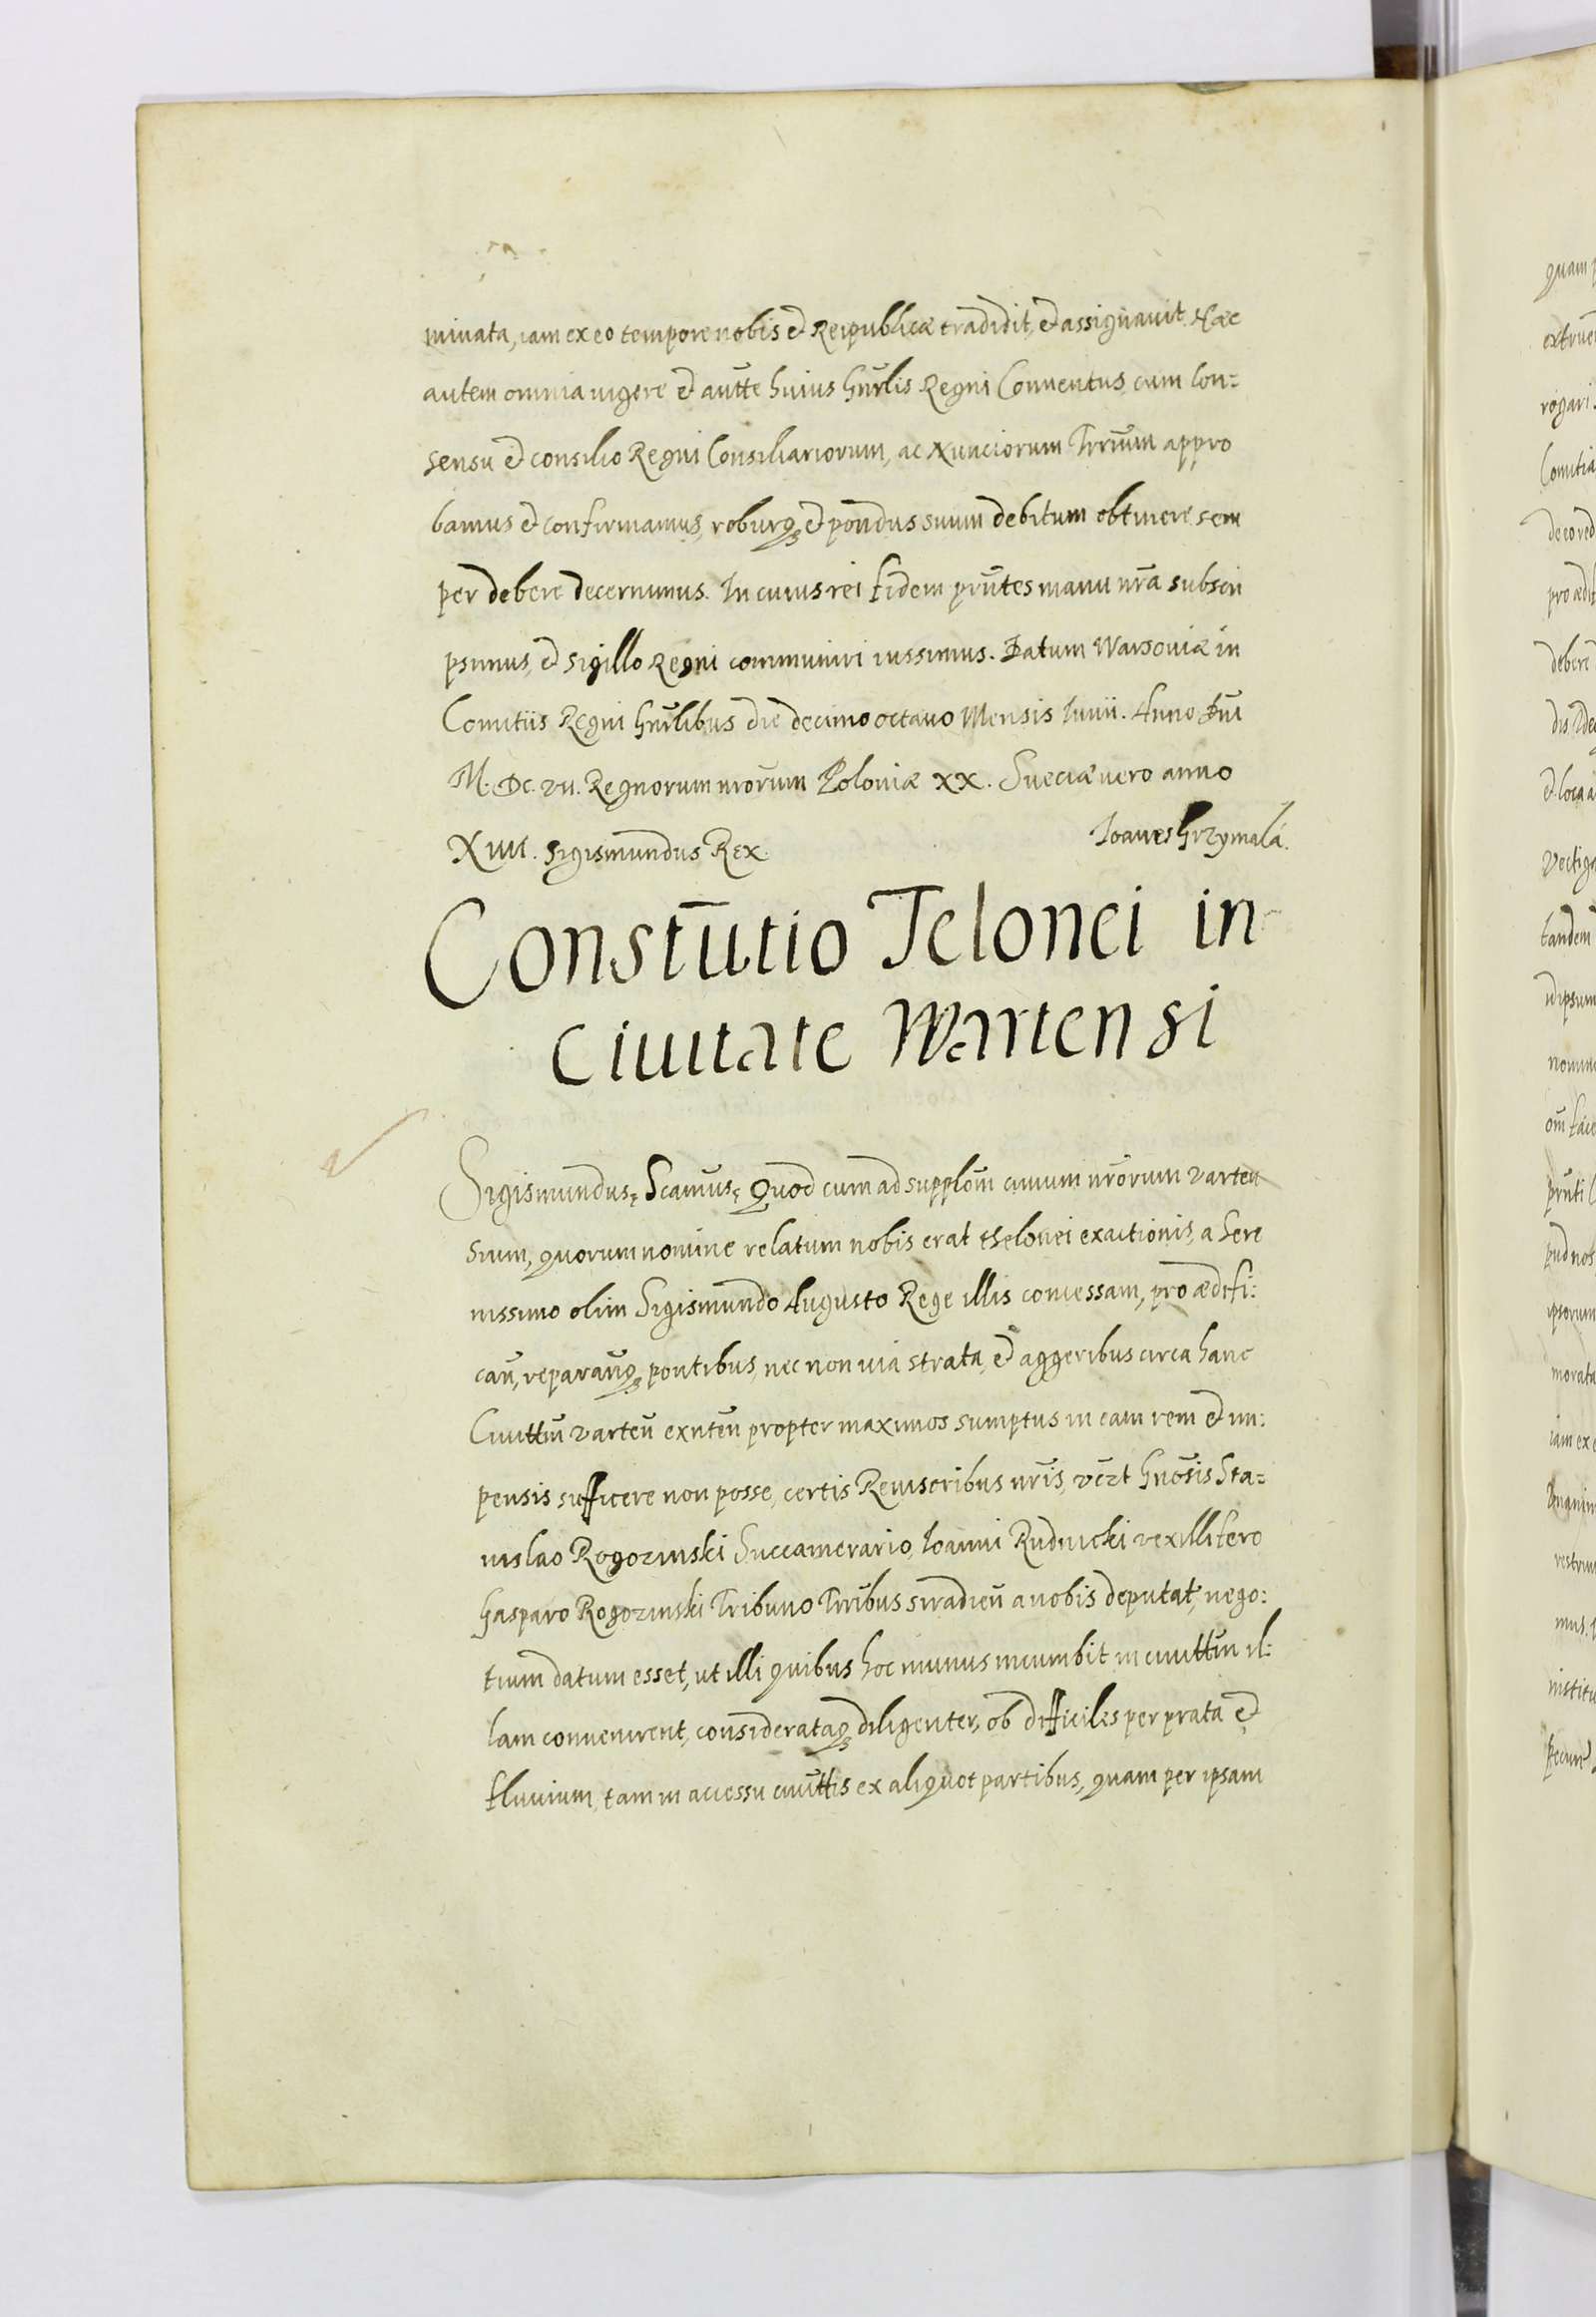 minata, iam ex eo tempore nobis et Reipublicæ tradidit, et assignauit. Hæc
autem omnia vigere et autte huius Gnrlis Regni Conuentus, cum Con:
sensu et consilio Regni Consiliariorum, ac Nunciorum Trrium appro
bamus et confirmamus, roburq3 et pondus suum debitum obtinere sem
per debere decernimus. In cuius rei fidem prntes manu nra subscri
psimus, et sigillo Regni communiri iussimus. Datum Warsouiæ in
Comitiis Regni Gnrlibus die decimo octauo Mensis Iunii. Anno Dni
M. DC. VII. Regnorum nrorum Poloniæ XX. Sueciæ vero anno
XIIII. Sigismundus Rex.
Ioanes Grzymala.
Constutio Telonei in
Ciuitate Wartensi
Sigismundus, Scamus, Quod cum ad supplom ciuium nrorum Varten
sium, quorum nomine relatum nobis erat thelonei exactionis, a Sere
nissimo olim Sigismundo Augusto Rege illis concessam, pro ædifi:
can, reparanq3 pontibus, nec non via strata, et aggeribus circa hanc
Ciuittm Varten exnten propter maximos sumptus in eam rem et im:
pensis sufficere non posse, certis Reuisoribus nris, vczt Gnosis Sta:
nislao Rogozinski Succamerario, Ioanni Rudnicki vexillifero
Gasparo Rogozinski Tribuno Trribus siradien a nobis deputat, nego:
tium datum esset, ut illi quibus hoc munus incumbit in ciuittm il:
lam conuenirent, considerataq3 diligenter, ob difficiles per prata et
fluuium, tam in accessu ciuittis ex aliquot partibus, quam per ipsam